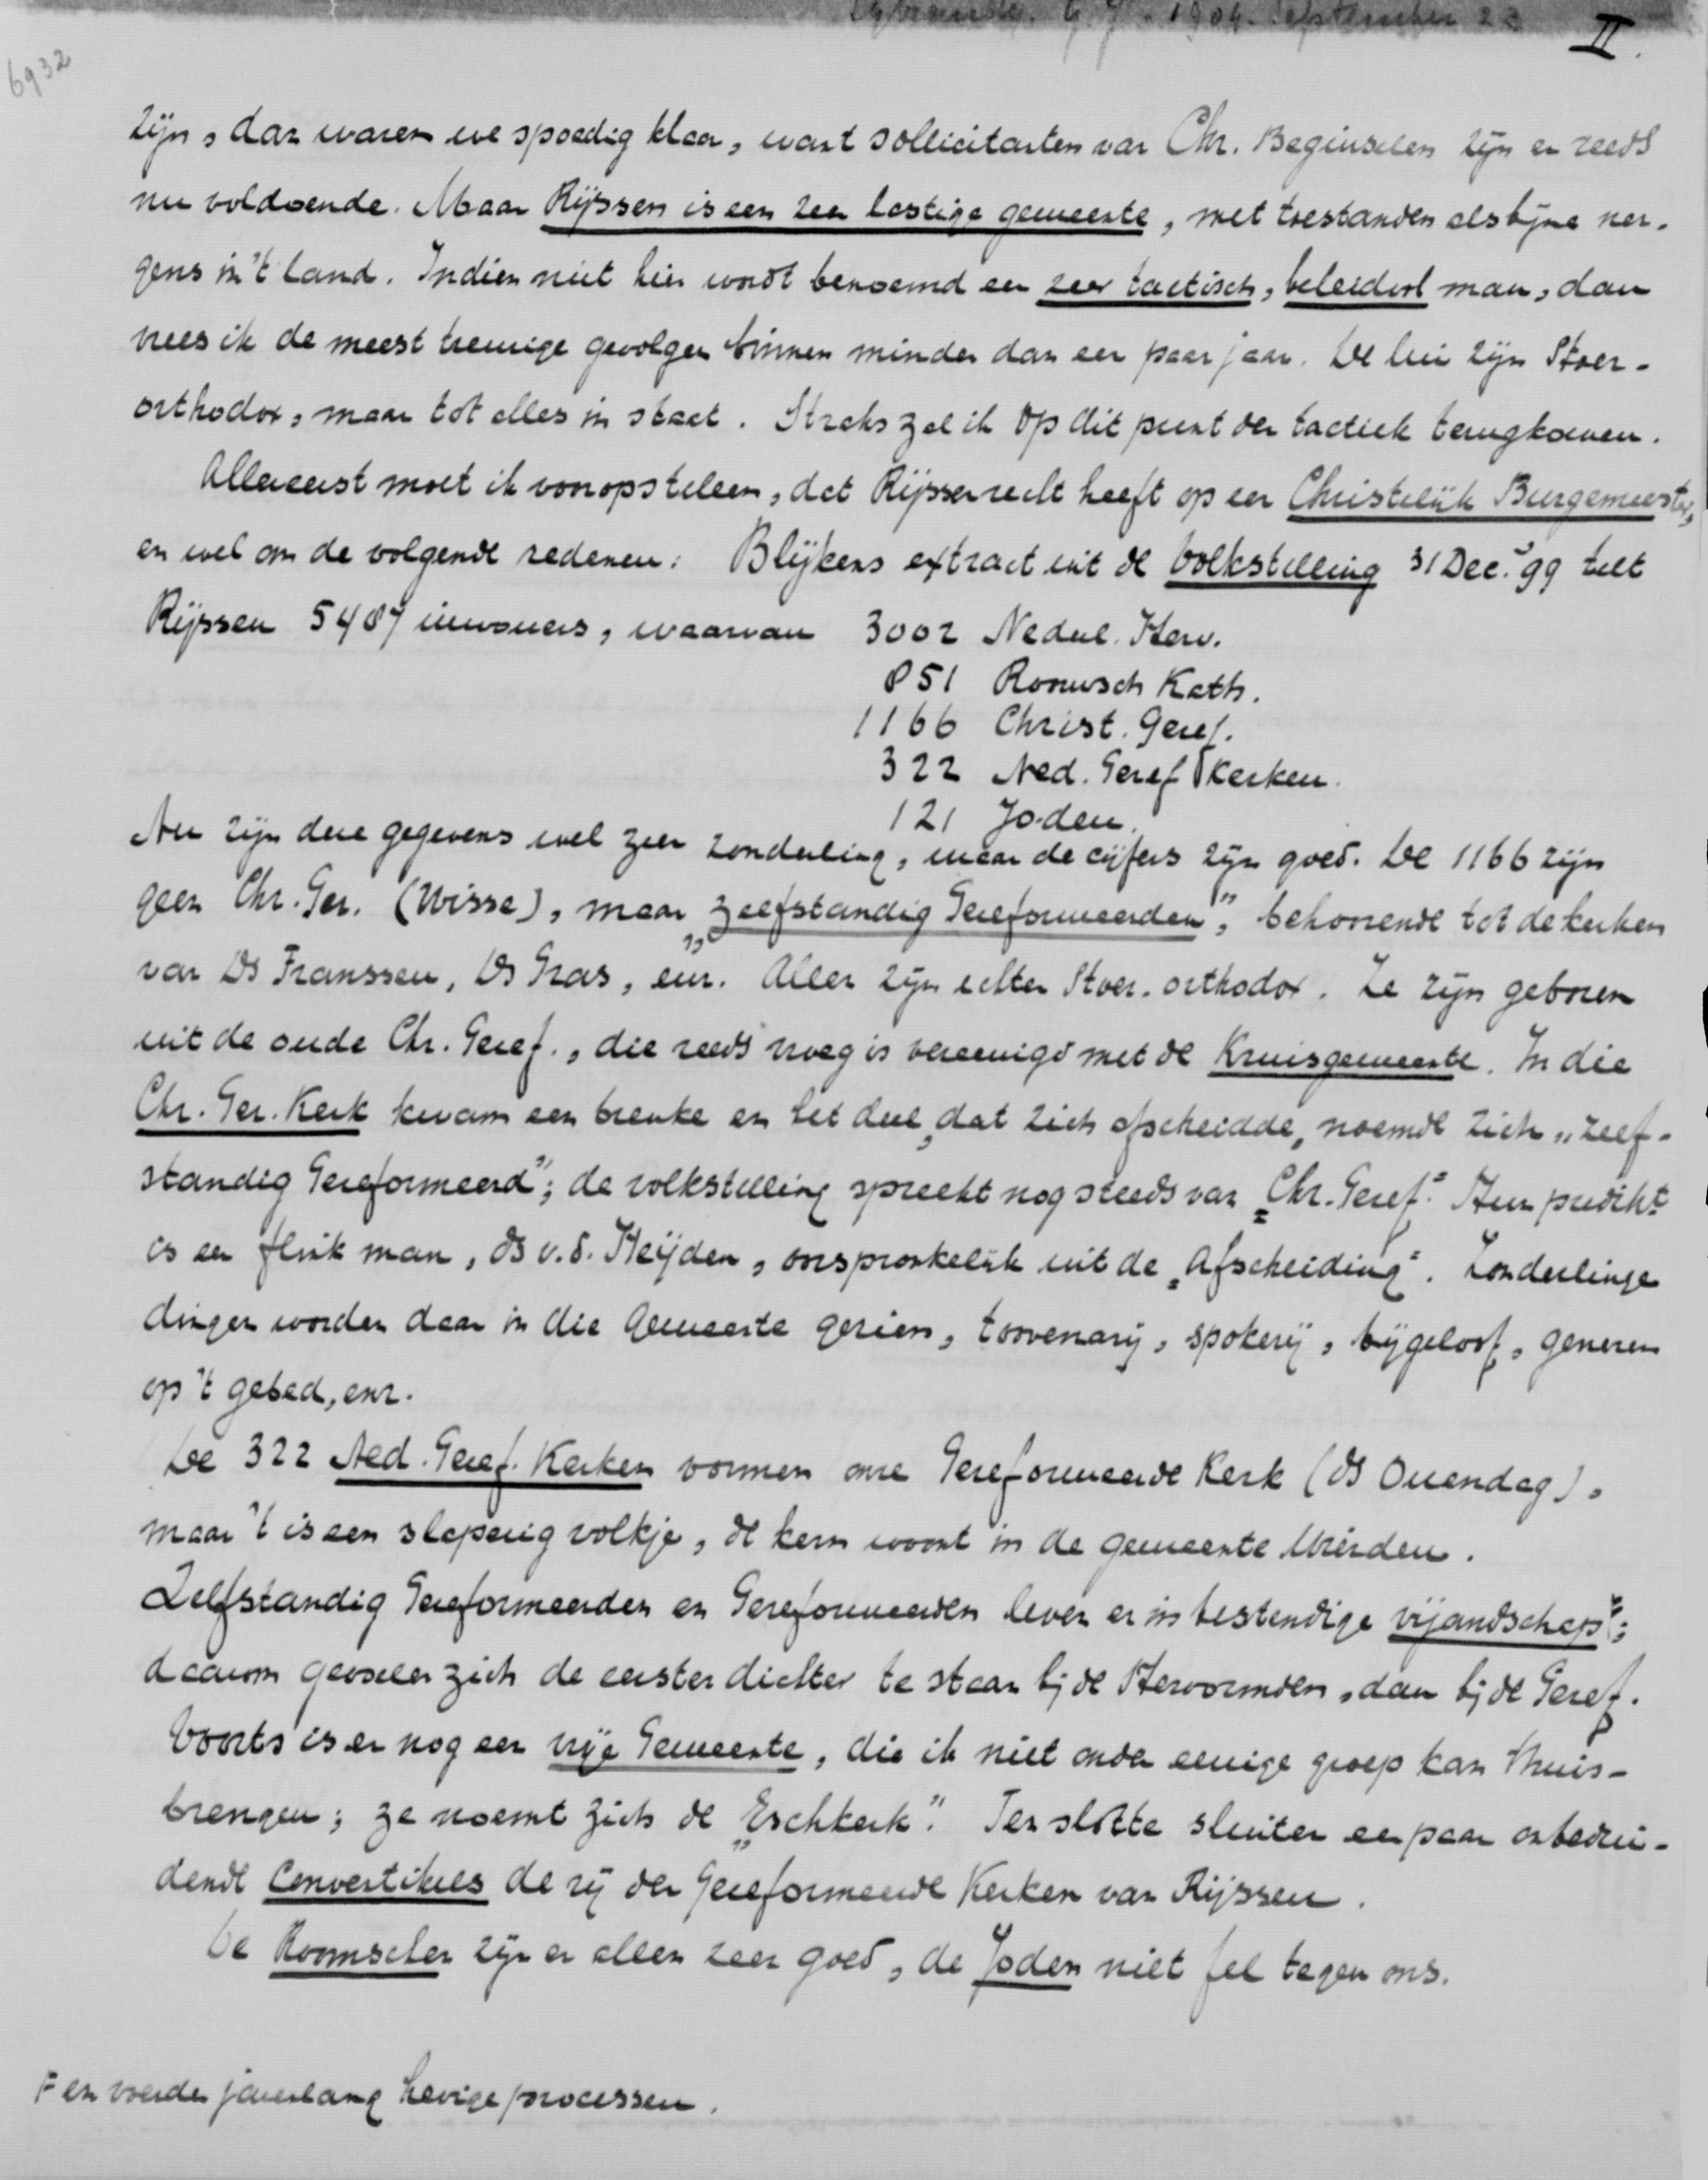 G. J. 1904. September 23
II.
6932
zijn, dan waren we spoedig klaar, want sollicitanten van Chr. Beginselen zijn er reeds
nu voldoende. Maar Rijssen is een zeer lastige gemeente, met toestanden als bijna ner-
gens in 't land. Indien niet hier wordt benoemd een zeer tactisch, beleidvol man, dan
vrees ik de meest treurige gevolgen binnen minder dan een paar jaar. De lui zijn Stoer-
orthodox, maar tot alles in staat. Straks zal ik op dit punt der tactiek terugkomen.
Allereerst moet ik vooropstellen, dat Rijssen recht heeft op een Christelijk Burgemeester,
en wel om de volgende redenen: Blijkens extract uit de Volkstelling 31 Dec. '99 telt
Rijssen 5487 inwoners, waarvan 3002 Nederl. Herv.
851 Roomsch Kath.
1166 Christ. Geref.
322 Ned. Geref Kerken.
121 Joden.
Nu zijn deze gegevens wel zeer zonderling, maar de cijfers zijn goed. De 1166 zijn
geen Chr. Ger. (Wisse), maar „Zelfstandig Gereformeerden", behoorende tot de kerken
van Ds Franssen, Ds Gras, enz. Allen zijn echter Stoer-orthodox. Ze zijn geboren
uit de oude Chr. Geref., die reeds vroeg is vereenigd met de Kruisgemeente. In die
Chr. Ger. Kerk kwam een breuke en het deel, dat zich afscheidde, noemde zich „zelf-
standig Gereformeerd"; de volkstelling spreekt nog steeds van „Chr. Geref." Hun predikt
is een flink man, ds v.d. Heijden, oorspronkelijk uit de „Afscheiding". Zonderlinge
dingen worden daar in die Gemeente gezien, toovenarij, spokerij, bijgeloof, genezen
op 't gebed, enz.
De 322 Ned. Geref. Kerken vormen onze Gereformeerde Kerk (ds Ouendag),
maar 't is een slaperig volkje, de kern woont in de gemeente Wierden.
Zelfstandig Gereformeerden en Gereformeerden leven er in bestendige vijandschap F;
daarom gevoelen zich de eersten dichter te staan bij de Hervormden, dan bij de Geref.
Voorts is er nog een vrije Gemeente, die ik niet onder eenige groep kan thuis-
brengen; ze noemt zich de „Eschkerk". Ten slotte sluiten een paar onbedui-
dende Conventikels de rij der Gereformeerde Kerken van Rijssen.
De Roomschen zijn er allen zeer goed, de Joden niet fel tegen ons.
F en voerden jarenlang hevige processen.